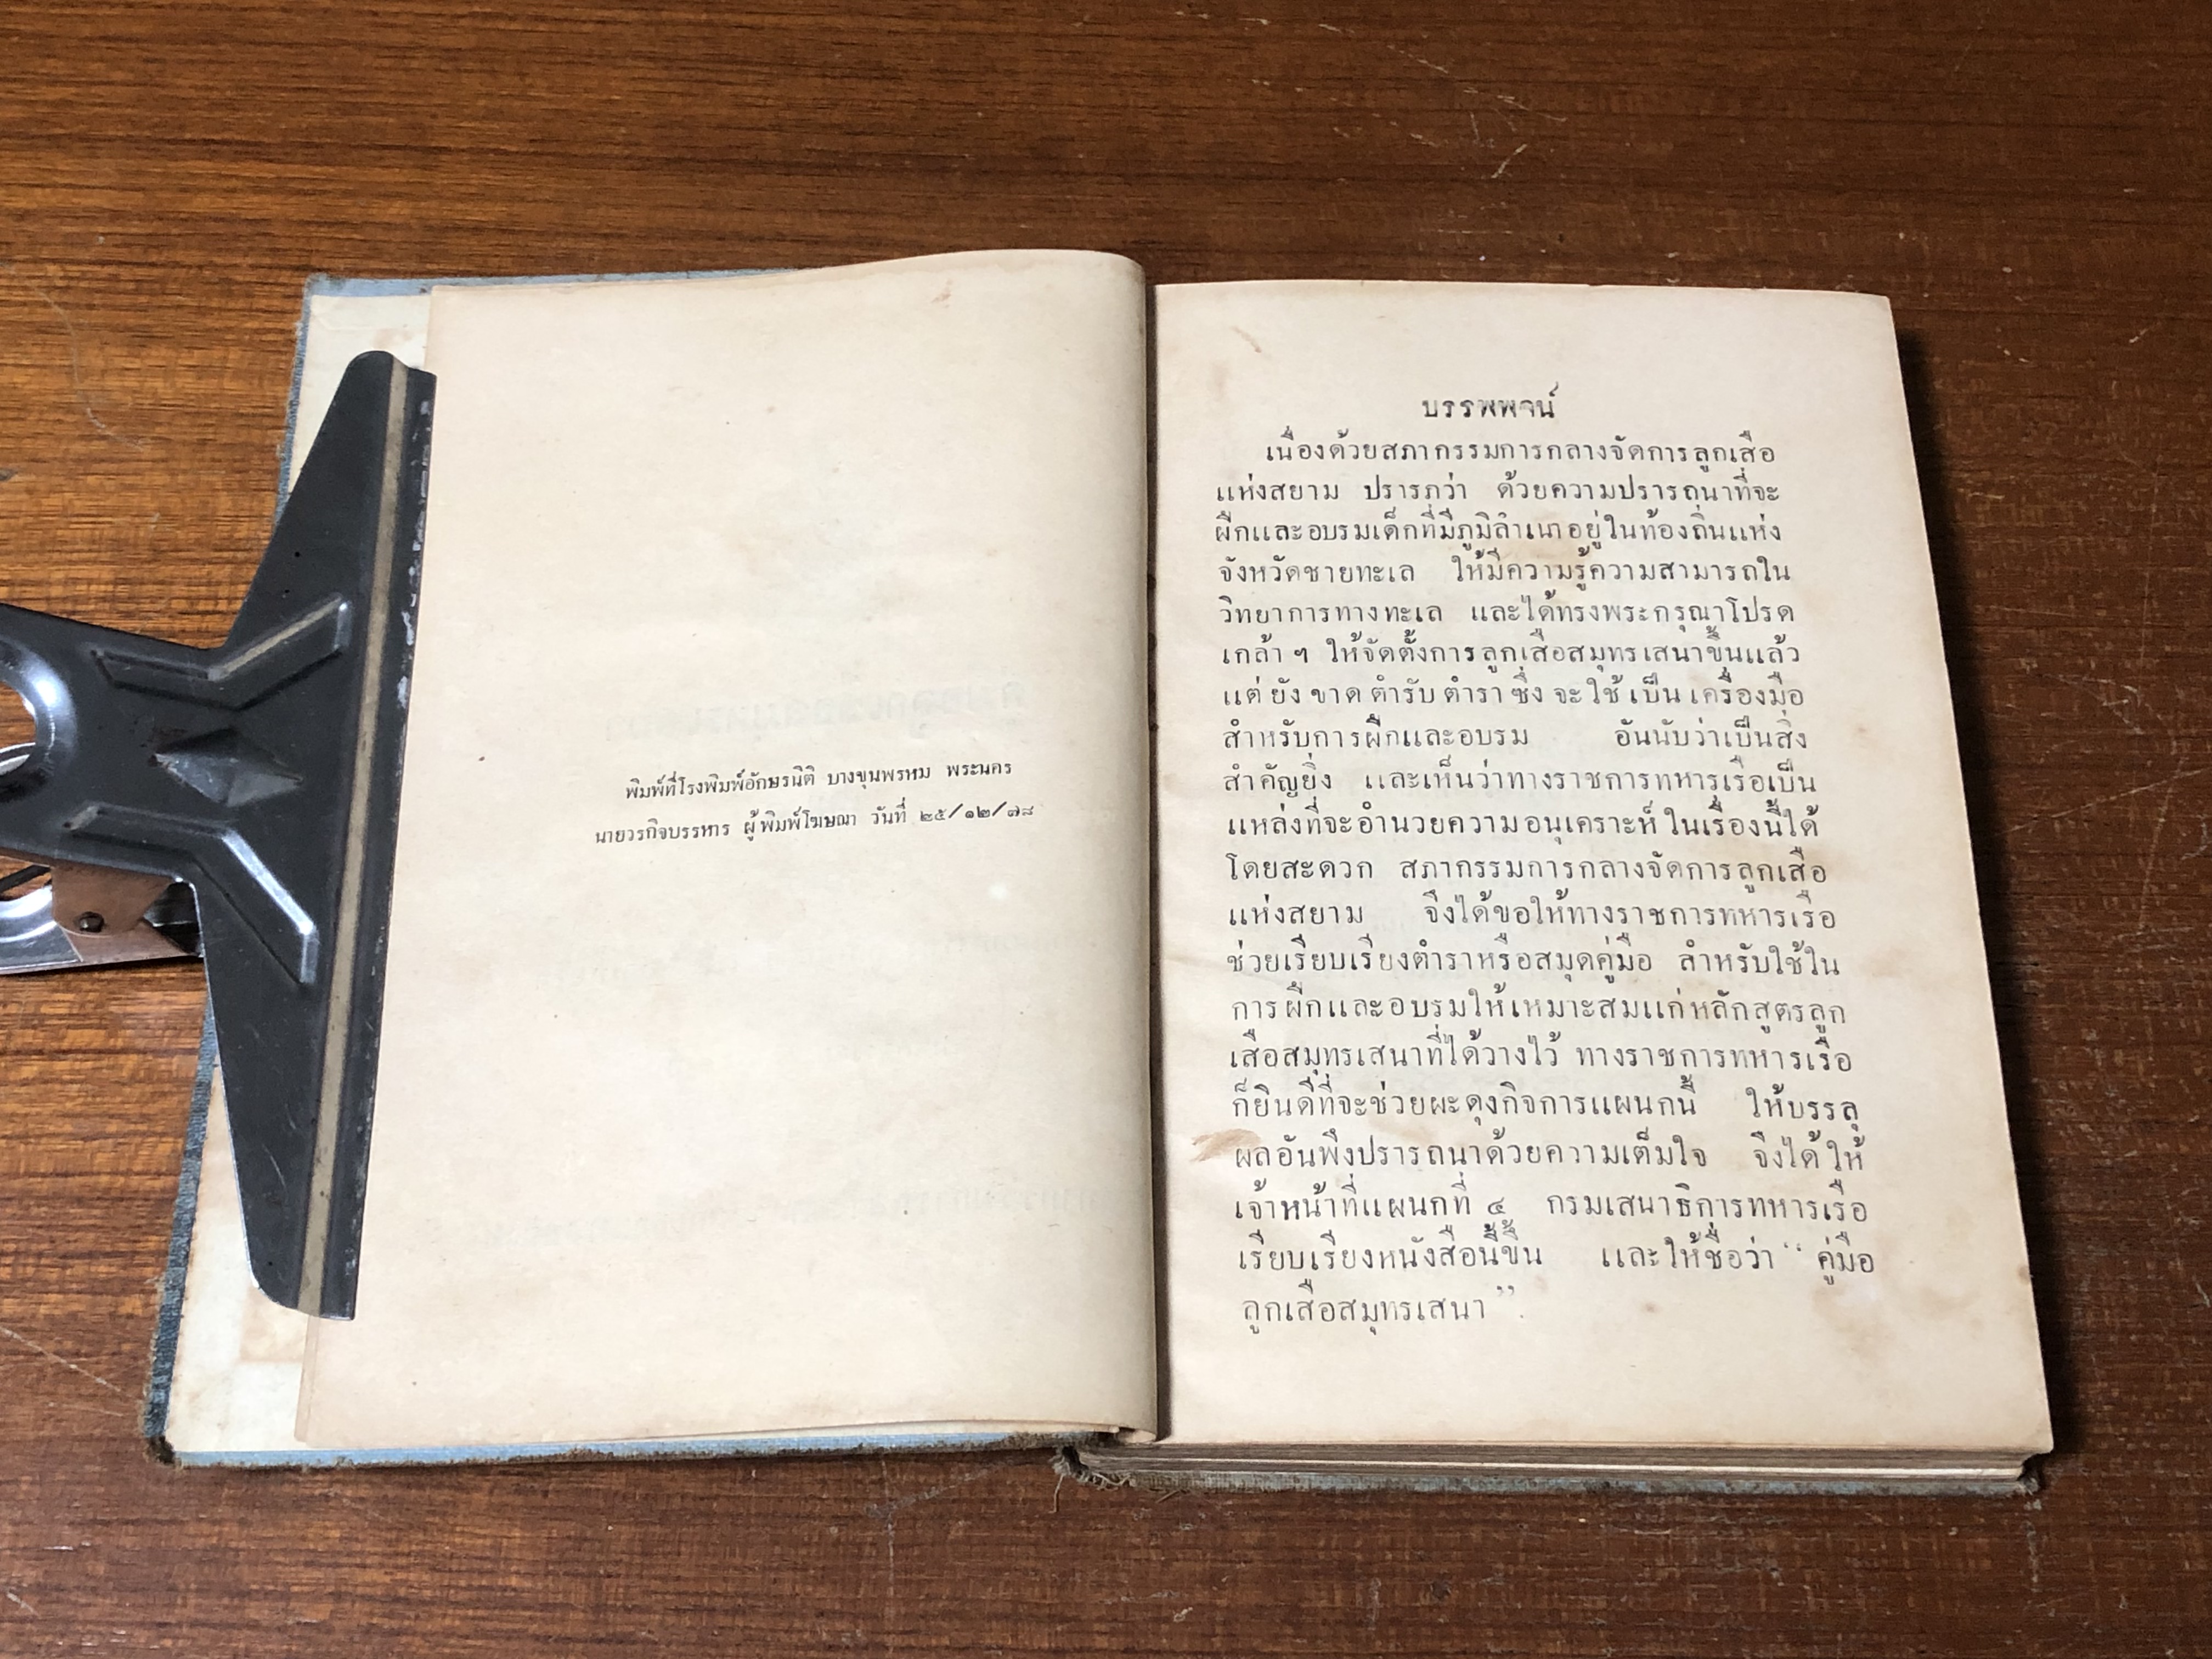 พิมพ์ที่โรงพิมพ์อักษรนิติ บางขุนพรหม พระนคร
นายวรกิจบรรหาร ผู้พิมพ์โฆษณา วันที่ ๒๕/๑๒/๗๘
บรรพพจน์
เนื่องด้วยสภากรรมการกลางจัดการลูกเสือ
แห่งสยาม ปรารภว่า ด้วยความปรารถนาที่จะ
ฝึกและอบรมเด็กที่มีภูมิลำเนาอยู่ในท้องถิ่นแห่ง
จังหวัดชายทะเล ให้มีความรู้ความสามารถใน
วิทยาการทางทะเล และได้ทรงพระกรุณาโปรด
เกล้า ฯ ให้จัดตั้งการลูกเสือสมุทรเสนาขึ้นแล้ว
แต่ยังขาดตำรับตำราซึ่งจะใช้เป็นเครื่องมือ
สำหรับการฝึกและอบรม อันนับว่าเป็นสิ่ง
สำคัญยิ่ง และเห็นว่าทางราชการทหารเรือเป็น
แหล่งที่จะอำนวยความอนุเคราะห์ในเรื่องนี้ได้
โดยสะดวก สภากรรมการกลางจัดการลูกเสือ
แห่งสยาม จึงได้ขอให้ทางราชการทหารเรือ
ช่วยเรียบเรียงตำราหรือสมุดคู่มือ สำหรับใช้ใน
การฝึกและอบรมให้เหมาะสมแก่หลักสูตรลูก
เสือสมุทรเสนาที่ได้วางไว้ ทางราชการทหารเรือ
ก็ยินดีที่จะช่วยผะดุงกิจการแผนกนี้ ให้บรรลุ
ผลอันพึงปรารถนาด้วยความเต็มใจ จึงได้ให้
เจ้าหน้าที่แผนกที่ ๔ กรมเสนาธิการทหารเรือ
เรียบเรียงหนังสือนี้ขึ้น และให้ชื่อว่า “ คู่มือ
ลูกเสือสมุทรเสนา ”.